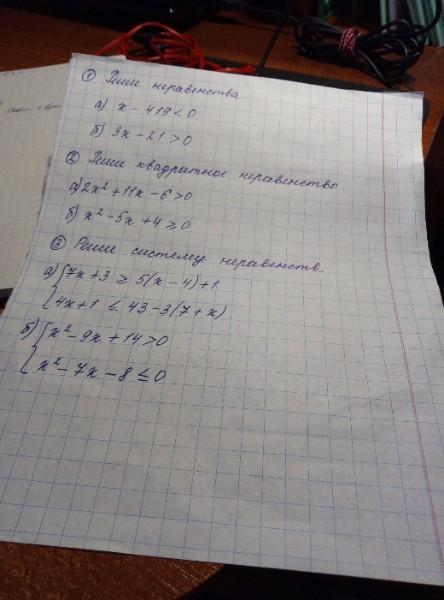 ① Реши неравенства
а) x - 419 < 0
б) 3x - 21 > 0
② Реши квадратное неравенство
а) 2x² + 11x - 6 > 0
б) x² - 5x + 4 ≥ 0
③ Реши систему неравенств.
а) { 7x + 3 ≥ 5(x - 4) + 1
4x + 1 ≤ 43 - 3(7 + x)
б) { x² - 9x + 14 > 0
x² - 7x - 8 ≤ 0